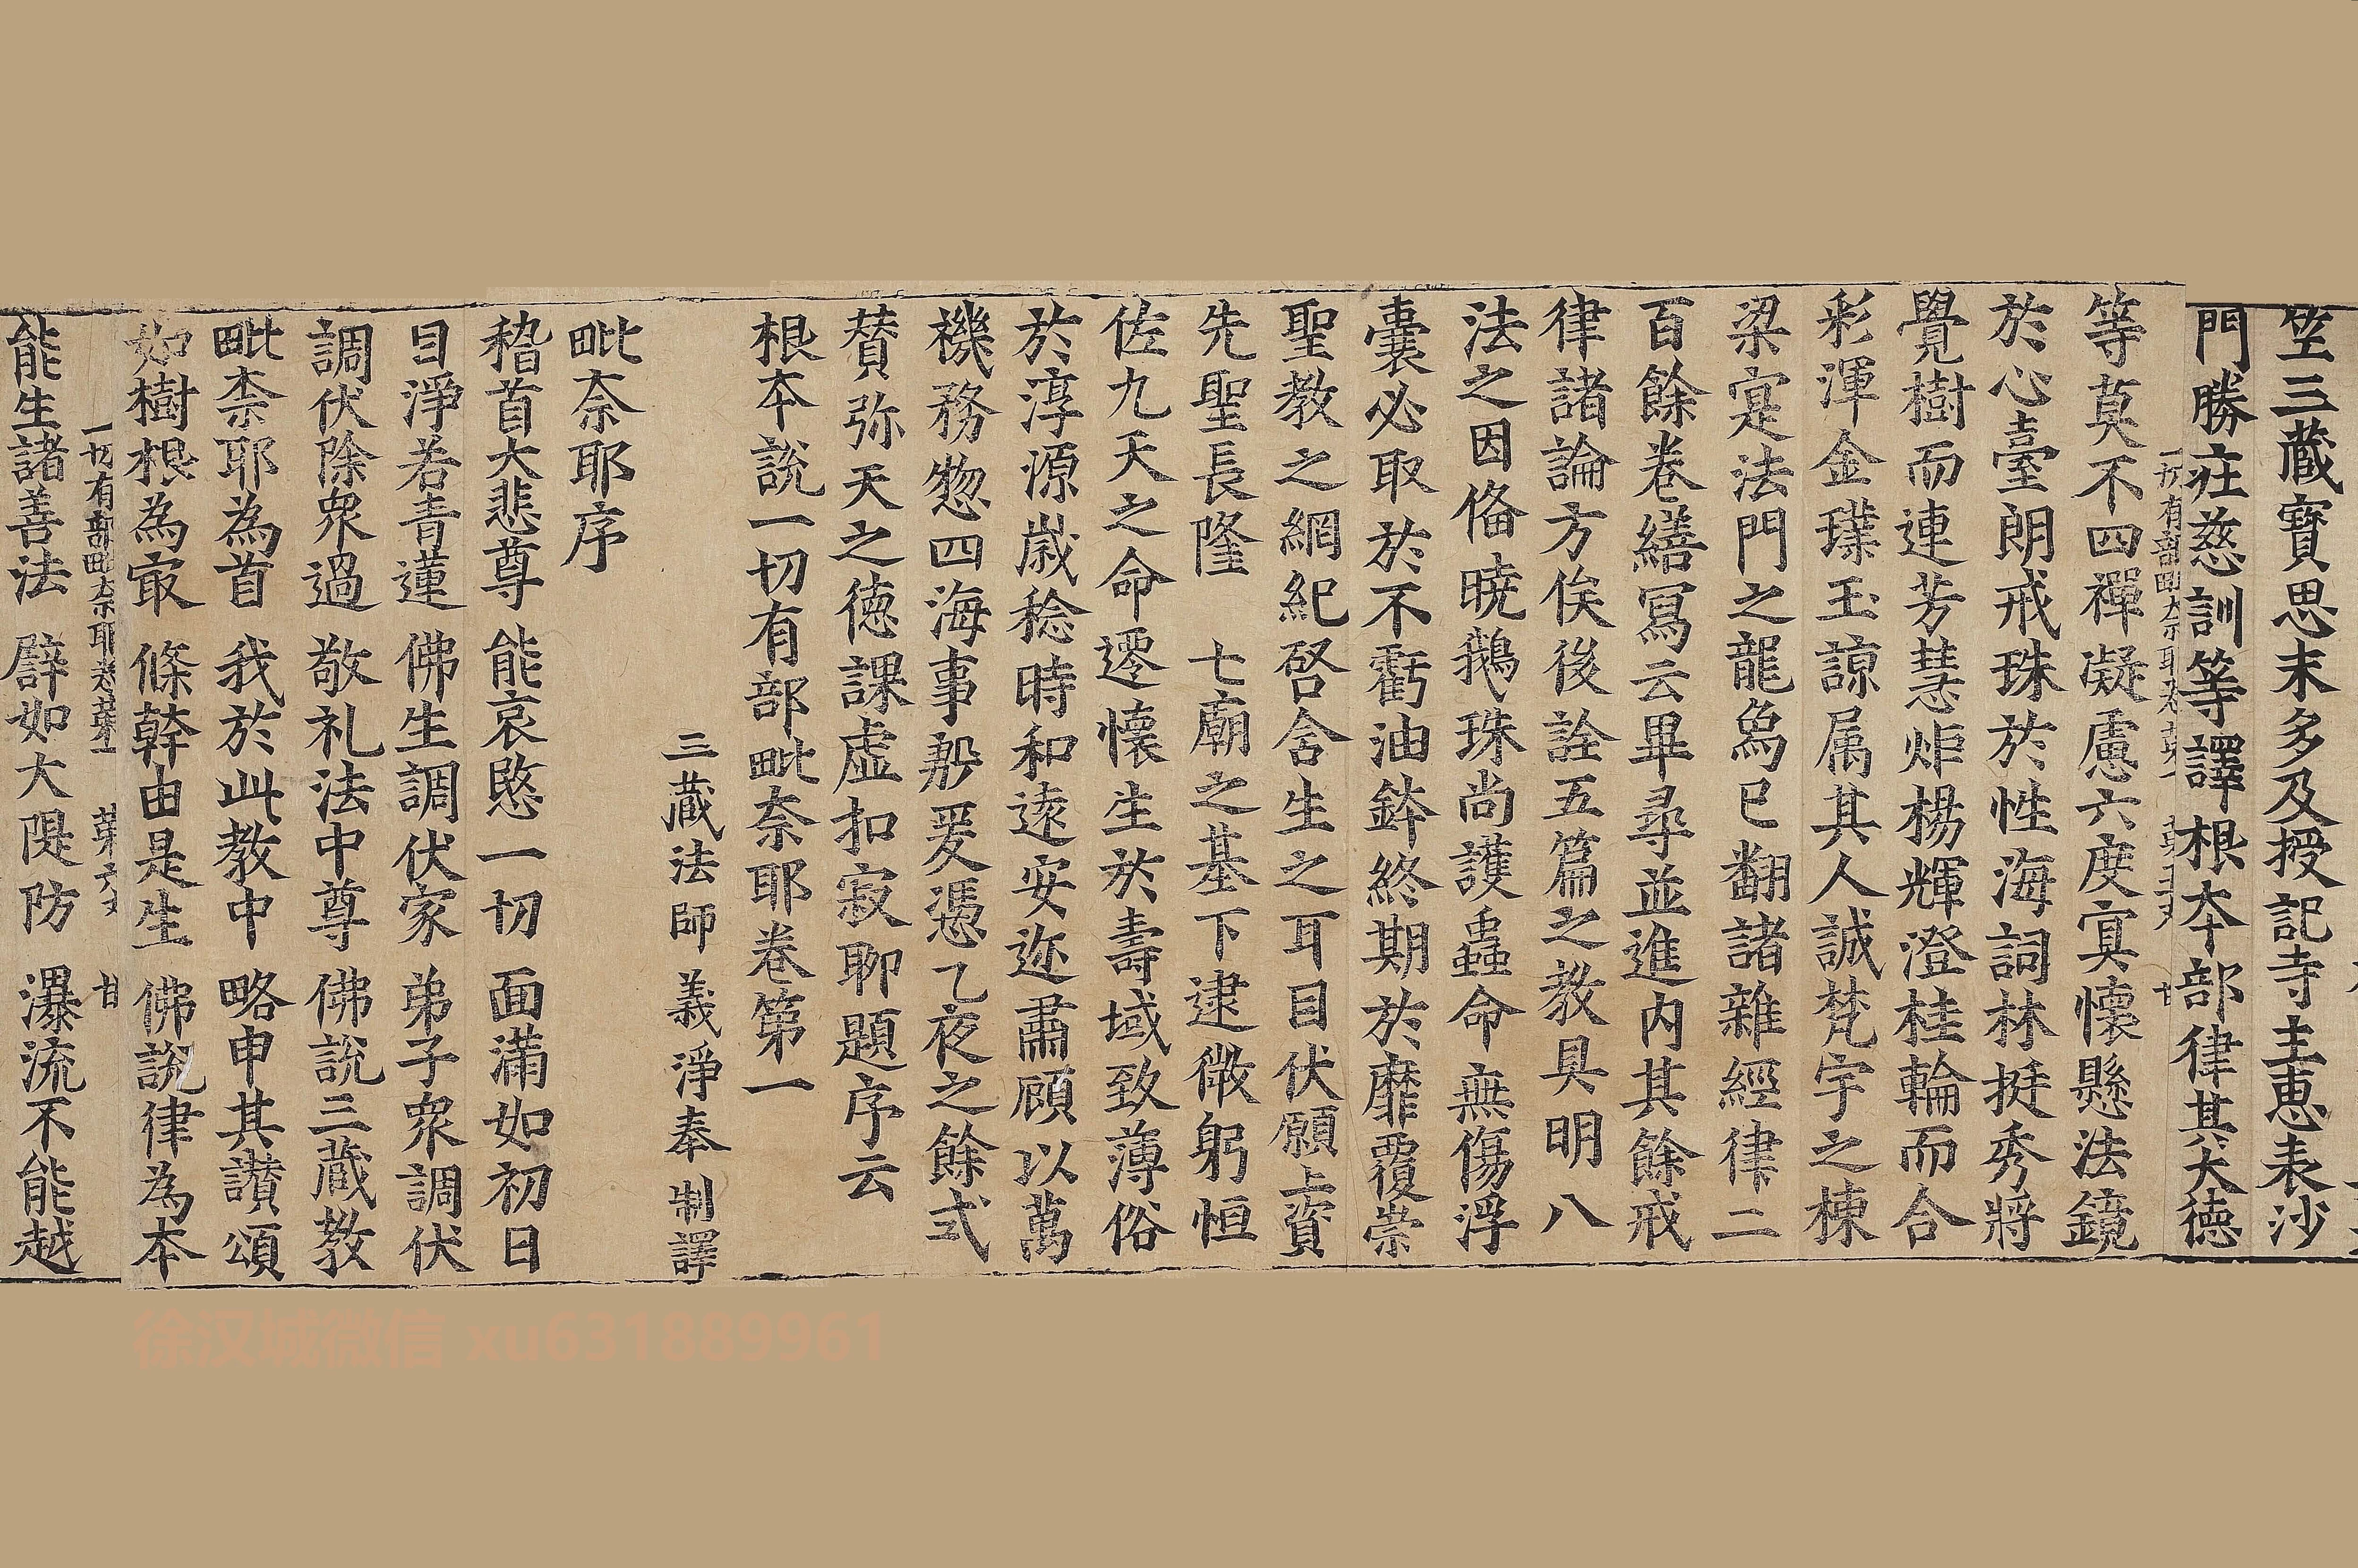 笁三藏寶思末多及授記寺主惠表沙
門勝莊慈訓等譯根本部律其大德
一切有部毗奈耶卷第一
等莫不四禪凝慮六度寘懷懸法鏡
於心臺朗戒珠於性海詞林挺秀將
覺樹而連芳慧炬楊輝澄桂輪而合
彩渾金璞玉諒属其人誠梵宇之棟
梁寔法門之龍象已翻諸雜經律二
百餘卷繕寫云畢尋並進内其餘戒
律諸論方俟後詮五篇之教具明八
法之因俻曉鵝珠尚護蟲命無傷浮
囊必取於不虧油鉢終期於靡覆崇
聖教之網紀啓含生之耳目伏願上資
先聖長隆 七廟之基下逮微躬恒
佐九天之命遷懷生於壽域致薄俗
於淳源歲稔時和遠安迩肅顧以萬
機務惣四海事殷爰憑乙夜之餘式
賛弥天之德課虚扣寂聊題序云
根本說一切有部毗奈耶卷第一
三藏法師 義淨奉 制譯
毗奈耶序
稽首大悲尊 能哀愍一切 面滿如初日
目淨若青蓮 佛生調伏家 弟子眾調伏
調伏除眾過 敬礼法中尊 佛說三藏教
毗柰耶為首 我於此教中 略申其讃頌
如樹根為㝡 條幹由是生 佛說律為本
一切有部毗奈耶卷第一 第六丈 甘
能生諸善法 譬如大隄防 瀑流不能越
徐汉城微信 xu631889961